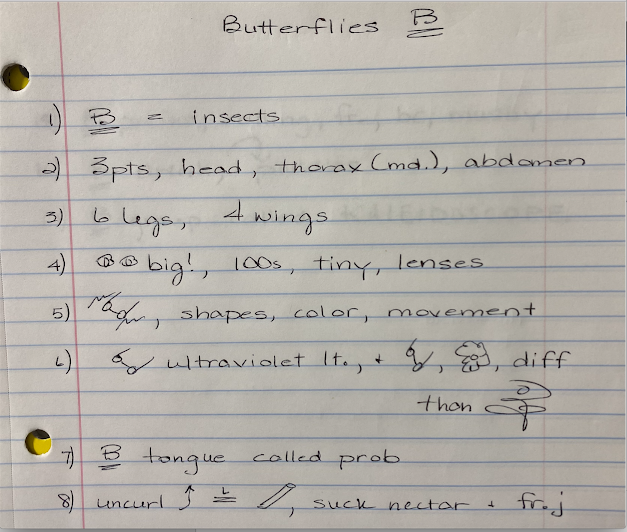 Butterflies B
1) B = insects
2) 3pts, head, thorax (md.), abdomen
3) 6 legs, 4 wings
4) big!, 100s, tiny, lenses
5) , shapes, color, movement
6) ultraviolet lt., + , , diff
than
7) B tongue called prob
8) uncurl ↑ = , suck nectar + fr. j